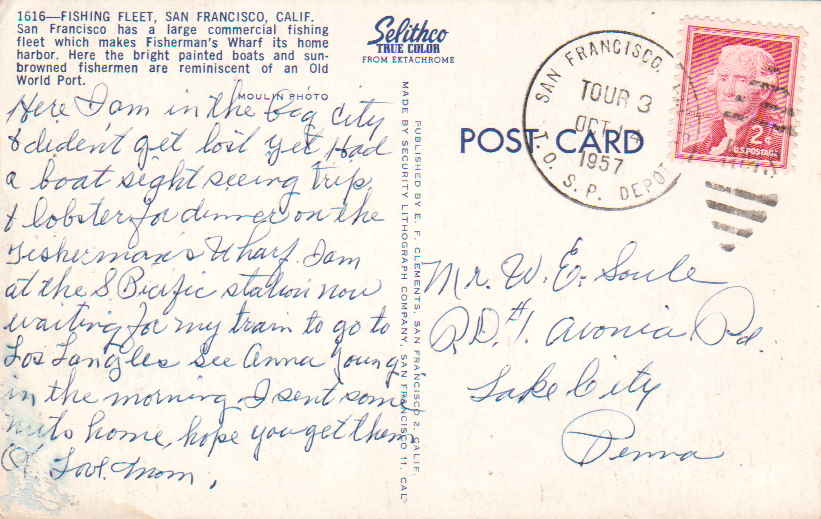 1616—FISHING FLEET, SAN FRANCISCO, CALIF.
San Francisco has a large commercial fishing
fleet which makes Fisherman's Wharf its home
harbor. Here the bright painted boats and sun-
browned fishermen are reminiscent of an Old
World Port.
MOULIN PHOTO
Selithco
TRUE COLOR
FROM EKTACHROME
Here I am in the big city
& dident get lost yet Had
a boat sight seeing trip,
& lobster for dinner on the
Fisherman's Wharf. I am
at the S. Pacific station now
waiting for my train to go to
Los Langles see Anna Young
in the morning I sent some
nuts home, hope you get them
Love. Mom,
PUBLISHED BY E. F. CLEMENTS, SAN FRANCISCO 2, CALIF.
MADE BY SECURITY LITHOGRAPH COMPANY, SAN FRANCISCO 11, CAL
POST CARD
SAN FRANCISCO,
TOUR 3
OCT
1957
T.O. S.P. DEPOT
2¢
U.S. POSTAGE
Mr. W. E. Soule
R.D. #1. Avonia Rd.
Lake City
Penna